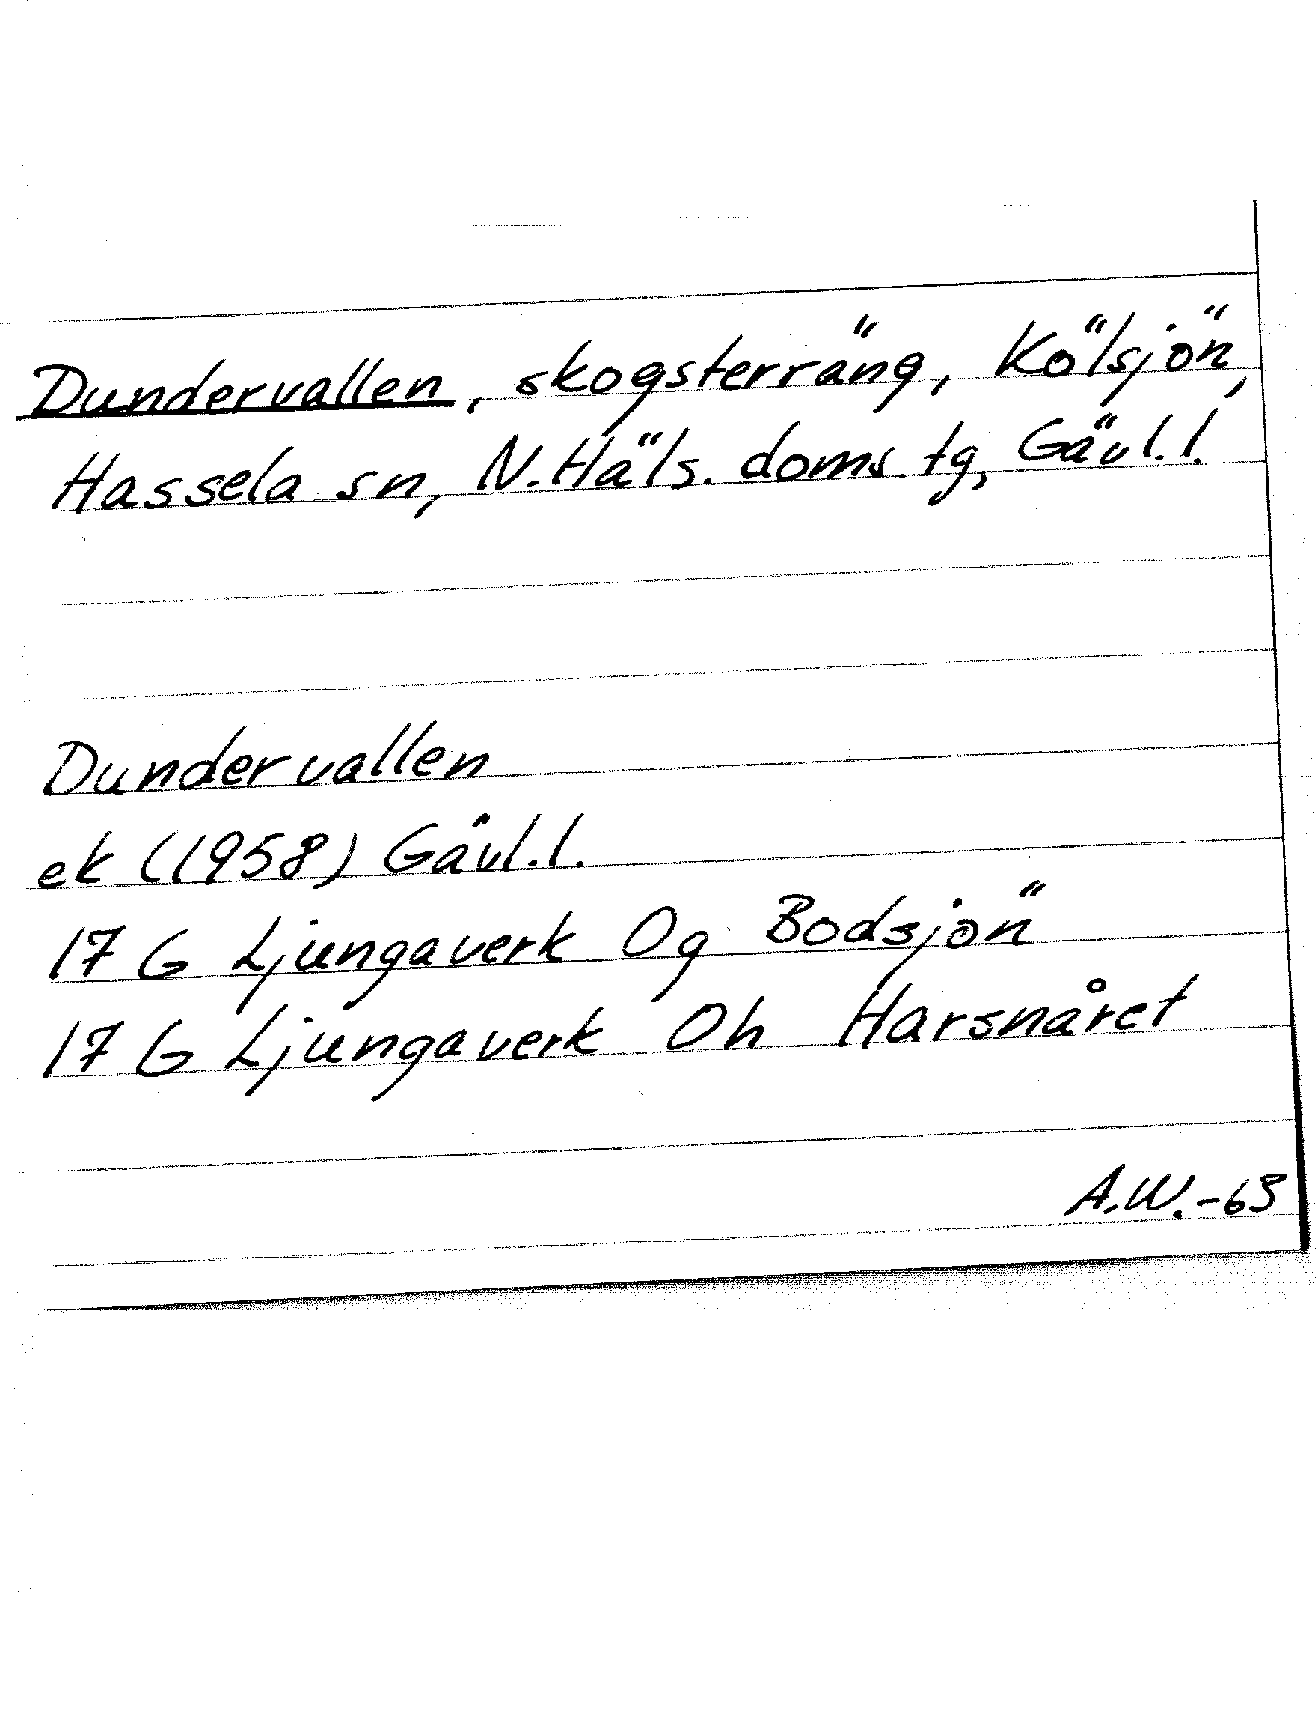 Dundervallen, skogsterräng, Kölsjön,
Hassela sn, N.Häls. doms.tg, Gävl.l.
Dundervallen
ek (1958) Gävl.l.
17 G Ljungaverk 0g Bodsjön
17 G Ljungaverk 0h Harsnåret
A.W.-63